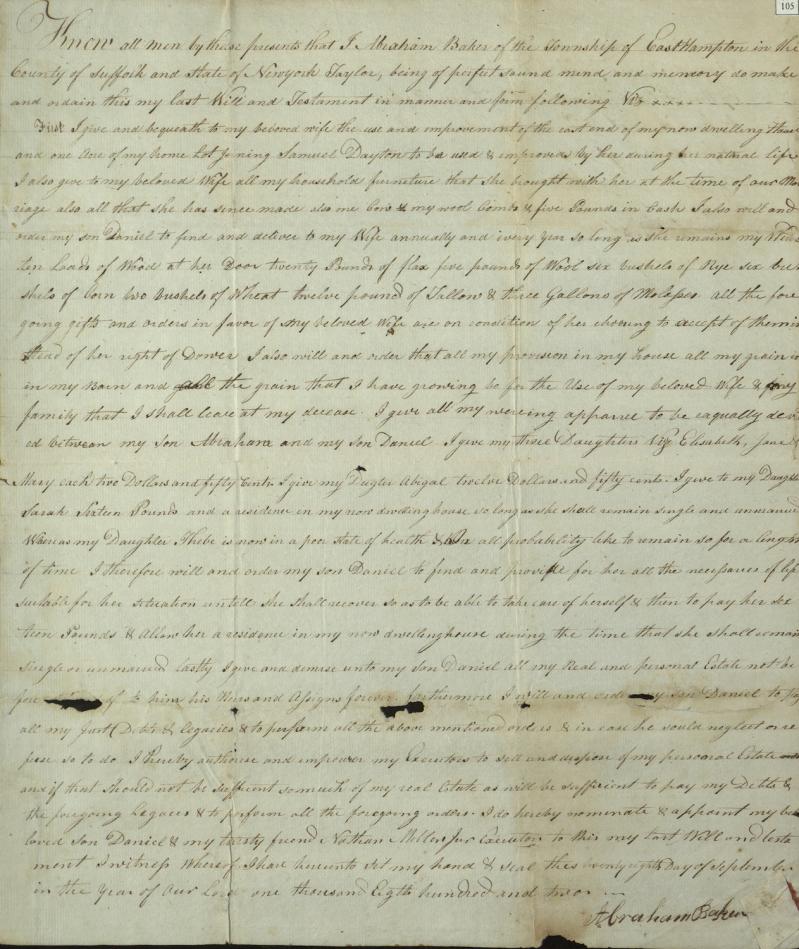 105
Know all men by these presents that I Abraham Baker of the Township of EastHampton in the
County of Suffolk and State of Newyork Taylor, being of perfect sound mind and memory do make
and ordain this my last Will and Testament in manner and form following Viz
First I give and bequeath to my beloved wife the use and improvement of the east end of my now dwelling House
and one Acre of my home Lot Joining Samuel Dayton to be used & improved by her during her natural life
I also give to my beloved Wife all my household furneture that she brought with her at the time of our Mar
riage also all that she has since made also one Cow & my wool Combs & five Pounds in Cash I also will and
order my son Daniel to find and deliver to my Wife annually and every year so long as she remains my
ten Loads of Wood at her Door twenty Pounds of flax five pounds of Wool six bushels of Rye six bu
shels of Corn two bushels of Wheat twelve pound of Tallow & three Gallons of Molasses all the fore
going gifts and orders in favor of my beloved Wife are on condition of her choosing to accept of them in
stead of her right of Dower I also will and order that all my provision in my house all my grain
in my Barn and the grain that I have growing be for the Use of my beloved Wife & my
family that I shall leave at my decease. I give all my wereing apparrel to be eaqually devid
ed between my Son Abraham and my Son Daniel I give my three Daughters Viz Elisabeth, Jane &
Mary each two Dollars and fifty Cents I give my Dugter Abigal twelve Dollars and fifty cents. I give to my Daughter
Sarah Sixteen Pounds and a residence in my now dwelling house so long as she shall remain single and unmarried
Whereas my Daughter Phebe is now in a poor state of health & in all probability like to remain so for a length
of time I therefore will and order my son Daniel to find and provide for her all the necessaries of life
suitable for her setuation untill she shall recover so as to be able to take care of herself & then to pay her Six
teen Pounds & Allow her a residence in my now dwellinghouse during the time that she shall remain
Single or unmarried lastly I give and demise unto my son Daniel all my Real and personal Estate not be
fore of to him his Heirs and Assigns forever furthermore I will and order my Son Daniel to pay
all my just Debts & Legacies & to perform all the above mentioned orders & in case he sould neglect or re
fuse so to do I hereby authorise and empower my Executors to sell and dispose of my personal Estate
and if that should not be sufficient so much of my real Estate as will be sufficient to pay my Debts &
the foregoing Legacies & to perform all the foregoing orders. I do hereby nominate & appoint my be
loved Son Daniel & my trusty friend Nathan Miller Jur Executors to this my last Will and testa
ment I witness Whereof I have hereunto set my hand & seal this twenty eighth Day of September
in the year of Our Lord one thousand Eigth hundred and two
Abraham Baker